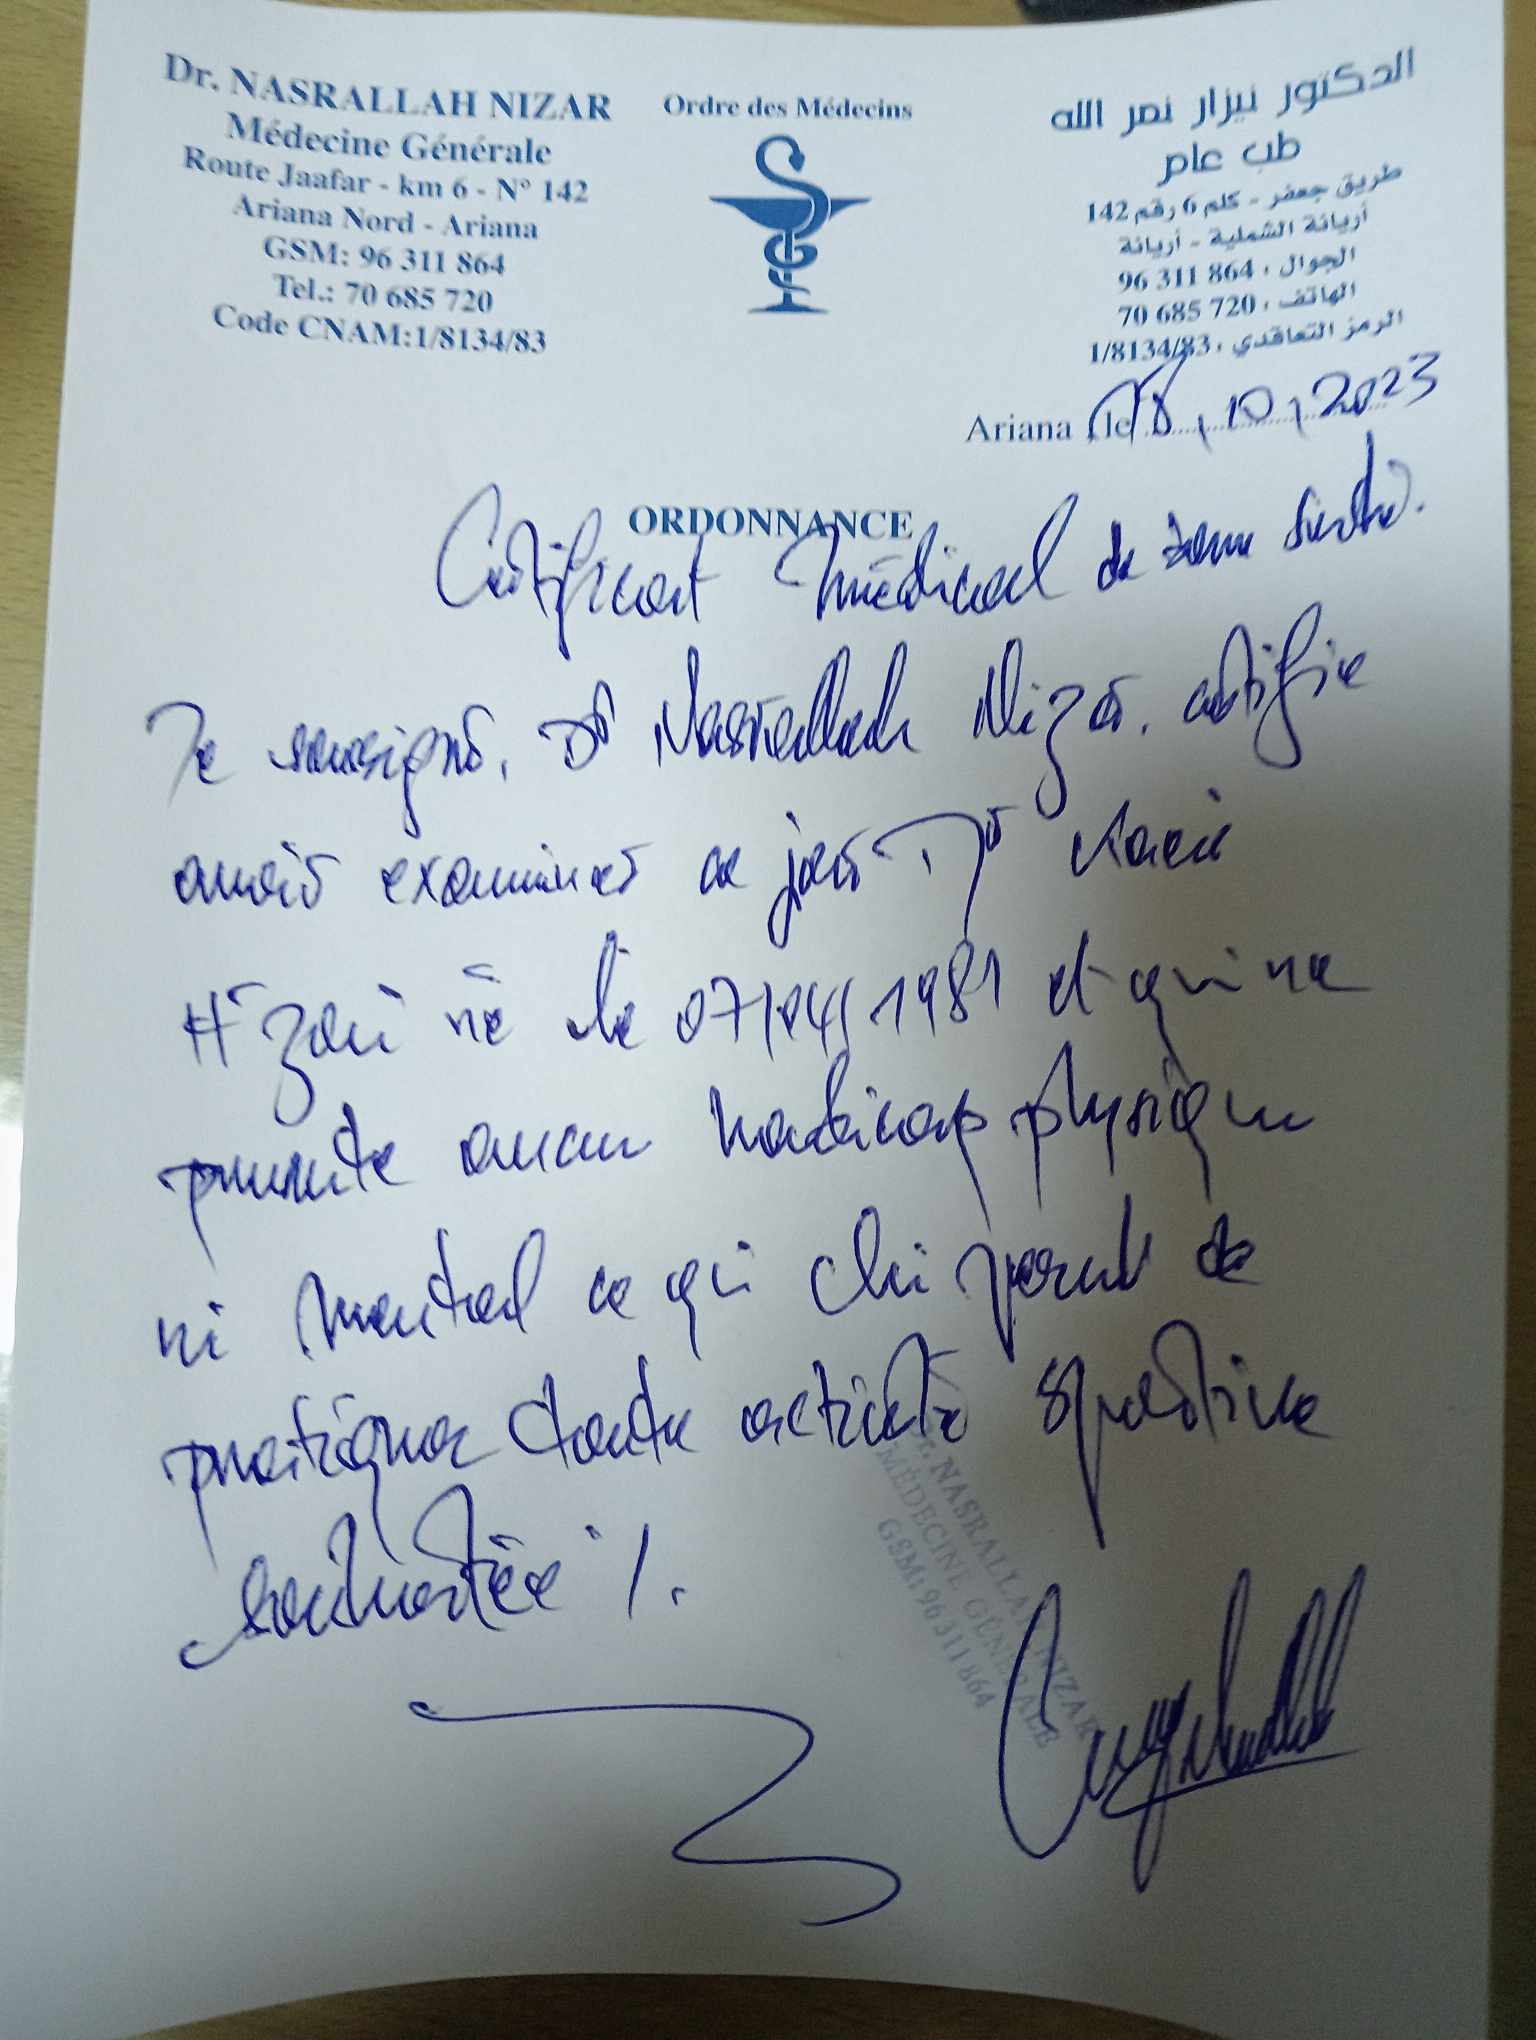 Dr. NASRALLAH NIZAR
Médecine Générale
Route Jaafar - km 6 - N° 142
Ariana Nord - Ariana
GSM: 96 311 864
Tel.: 70 685 720
Code CNAM:1/8134/83
Ordre des Médecins
الدكتور نيزار نصر الله
طب عام
طريق جعفر - كلم 6 رقم 142
أريانة الشملية - أريانة
الجوال : 96 311 864
الهاتف : 70 685 720
الرمز التعاقدي : 1/8134/83
Ariana , le 18, 10, 2023
ORDONNANCE
Certificat médical de bonne santé.
Je soussigné, Dr Nasrallah Nizar, certifie
avoir examiner ce jour Dr
né le 07/04/1981 et qui ne
présente aucun handicap physique
ni mental ce qui lui permet de
pratiquer toute activité sportive
souhaitée ./.
Dr. NASRALLAH NIZAR
MÉDECINE GÉNÉRALE
GSM: 96 311 864